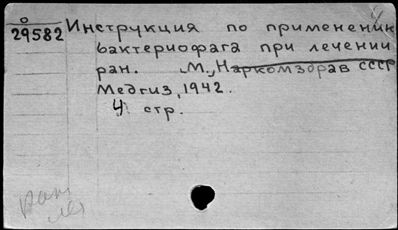 о
29582
Инструкция по применению
бактериофага при лечении
ран. М., Наркомздрав СССР
Медгиз, 1942.
4 стр.